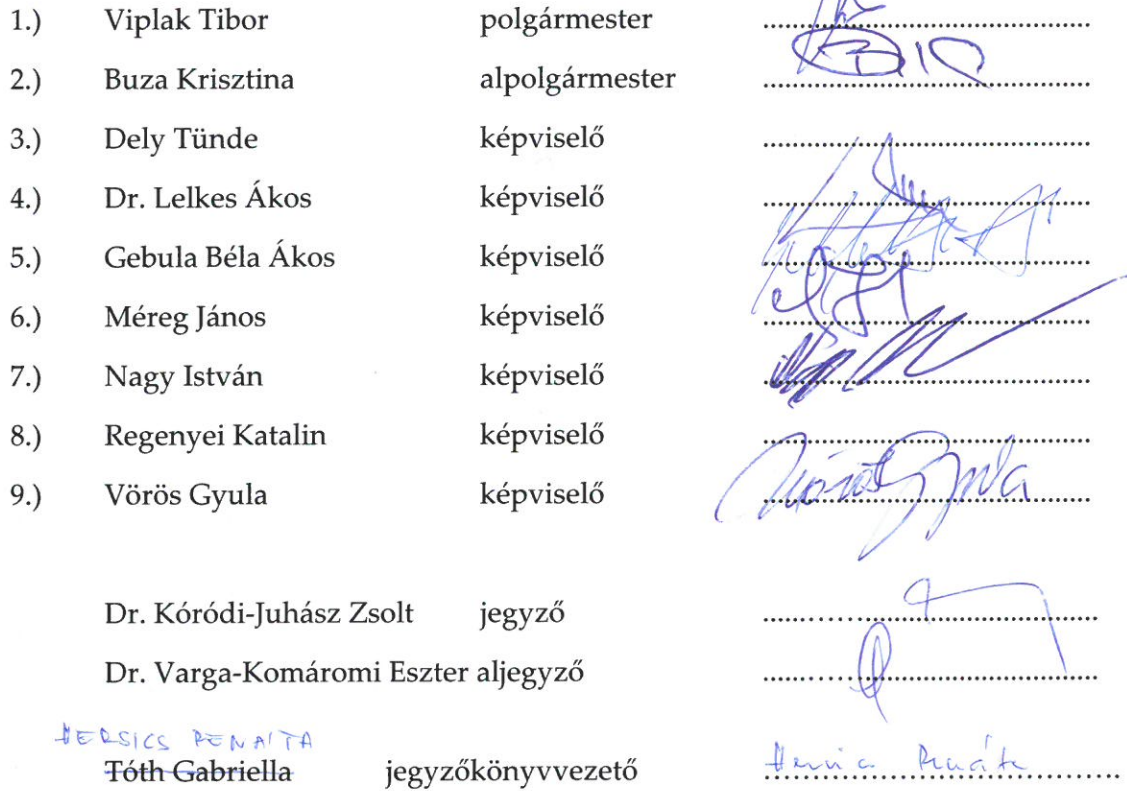 1.) Viplak Tibor polgármester ........................................
2.) Buza Krisztina alpolgármester ........................................
3.) Dely Tünde képviselő ........................................
4.) Dr. Lelkes Ákos képviselő ........................................
5.) Gebula Béla Ákos képviselő ........................................
6.) Méreg János képviselő ........................................
7.) Nagy István képviselő ........................................
8.) Regenyei Katalin képviselő ........................................
9.) Vörös Gyula képviselő ........................................ Vörös Gyula
Dr. Kóródi-Juhász Zsolt jegyző ........................................
Dr. Varga-Komáromi Eszter aljegyző ........................................
HERSICS RENÁTA
Tóth Gabriella jegyzőkönyvvezető ........................................ Renáta